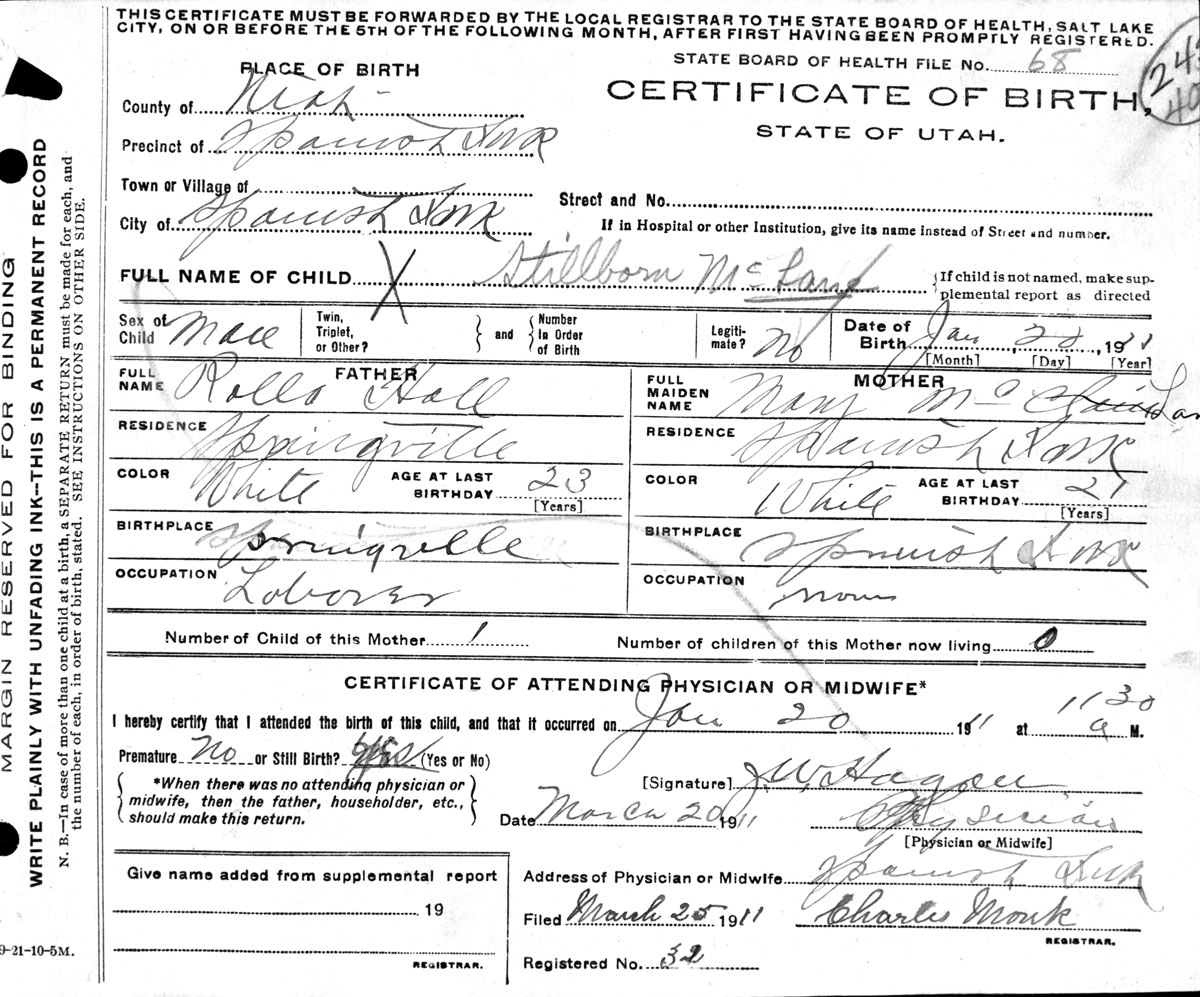 THIS CERTIFICATE MUST BE FORWARDED BY THE LOCAL REGISTRAR TO THE STATE BOARD OF HEALTH, SALT LAKE
CITY, ON OR BEFORE THE 5TH OF THE FOLLOWING MONTH, AFTER FIRST HAVING BEEN PROMPTLY REGISTERED.
STATE BOARD OF HEALTH FILE No. 68
PLACE OF BIRTH
CERTIFICATE OF BIRTH,
STATE OF UTAH.
County of Utah
Precinct of Spanish Fork
Town or Village of
City of Spanish Fork
Street and No.
If in Hospital or other Institution, give its name instead of Street and number.
FULL NAME OF CHILD X Stillborn McLane
{If child is not named, make sup-
plemental report as directed
Sex of Child Male
Twin, Triplet, or Other?
and
Number In Order of Birth
Legiti-mate? No
Date of Birth Jan, 20, 1911
[Month] [Day] [Year]
FATHER
FULL NAME Rollo Hall
RESIDENCE Springville
COLOR White AGE AT LAST BIRTHDAY 23
[Years]
BIRTHPLACE Springville
OCCUPATION Laborer
MOTHER
FULL MAIDEN NAME Mary Mc
RESIDENCE Spanish Fork
COLOR White AGE AT LAST BIRTHDAY 21
[Years]
BIRTHPLACE Spanish Fork
OCCUPATION
Number of Child of this Mother 1 Number of children of this Mother now living 0
CERTIFICATE OF ATTENDING PHYSICIAN OR MIDWIFE*
I hereby certify that I attended the birth of this child, and that it occurred on Jan 20 1911 at 1130 a M.
Premature No or Still Birth? Yes (Yes or No)
*When there was no attending physician or
midwife, then the father, householder, etc.,
should make this return.
[Signature] J.W. Hagen
Date March 20 1911 Physician
[Physician or Midwife]
Address of Physician or Midwife Spanish Fork
Give name added from supplemental report
19
REGISTRAR.
Filed March 25 1911 Charles Monk
REGISTRAR.
Registered No. 32
9-21-10-5M.
MARGIN RESERVED FOR BINDING
WRITE PLAINLY WITH UNFADING INK--THIS IS A PERMANENT RECORD
N. B.—In case of more than one child at a birth, a SEPARATE RETURN must be made for each, and
the number of each, in order of birth, stated. SEE INSTRUCTIONS ON OTHER SIDE.